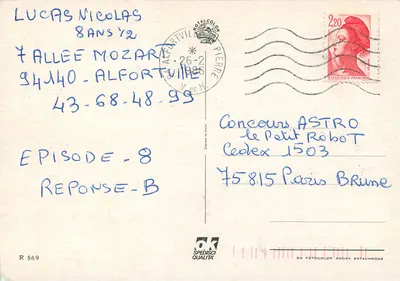 LUCAS NICOLAS
8 ANS 1/2
7 ALLEE MOZART
94140 - ALFORTVILLE
43-68-48-99
EPISODE - 8
REPONSE - B
ALFORTVILLE PIERRE
26-2
1986
V. DE M.
2,20
Concours ASTRO
le Petit RoboT
Cedex 1503
75815 Paris Brune
R 569
ok
SPEDISCI
QUALITA'
DA FOTOCOLOR KODAK EKTACHROME